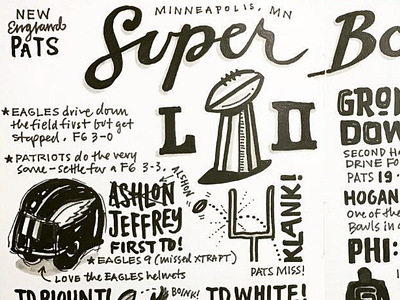 NEW
England
PATS
MINNEAPOLIS, MN
Super Bo
L II
★EAGLES drive down
the field first but get
stopped. FG 3-0
★PATRIOTS do the very
same - settle for a FG 3-3.
ALSHON
ASHLON
JEFFREY
FIRST TD!
★EAGLES 9 (missed XTRAPT)
LOVE the EAGLES helmets
KLANK!
PATS MISS!
TD BLOUNT!
BOINK!
TD WHITE!
GRO
DOW
SECOND HA
DRIVE FO
PATS 19
HOGAN
One of the
Bowls in
PHI: